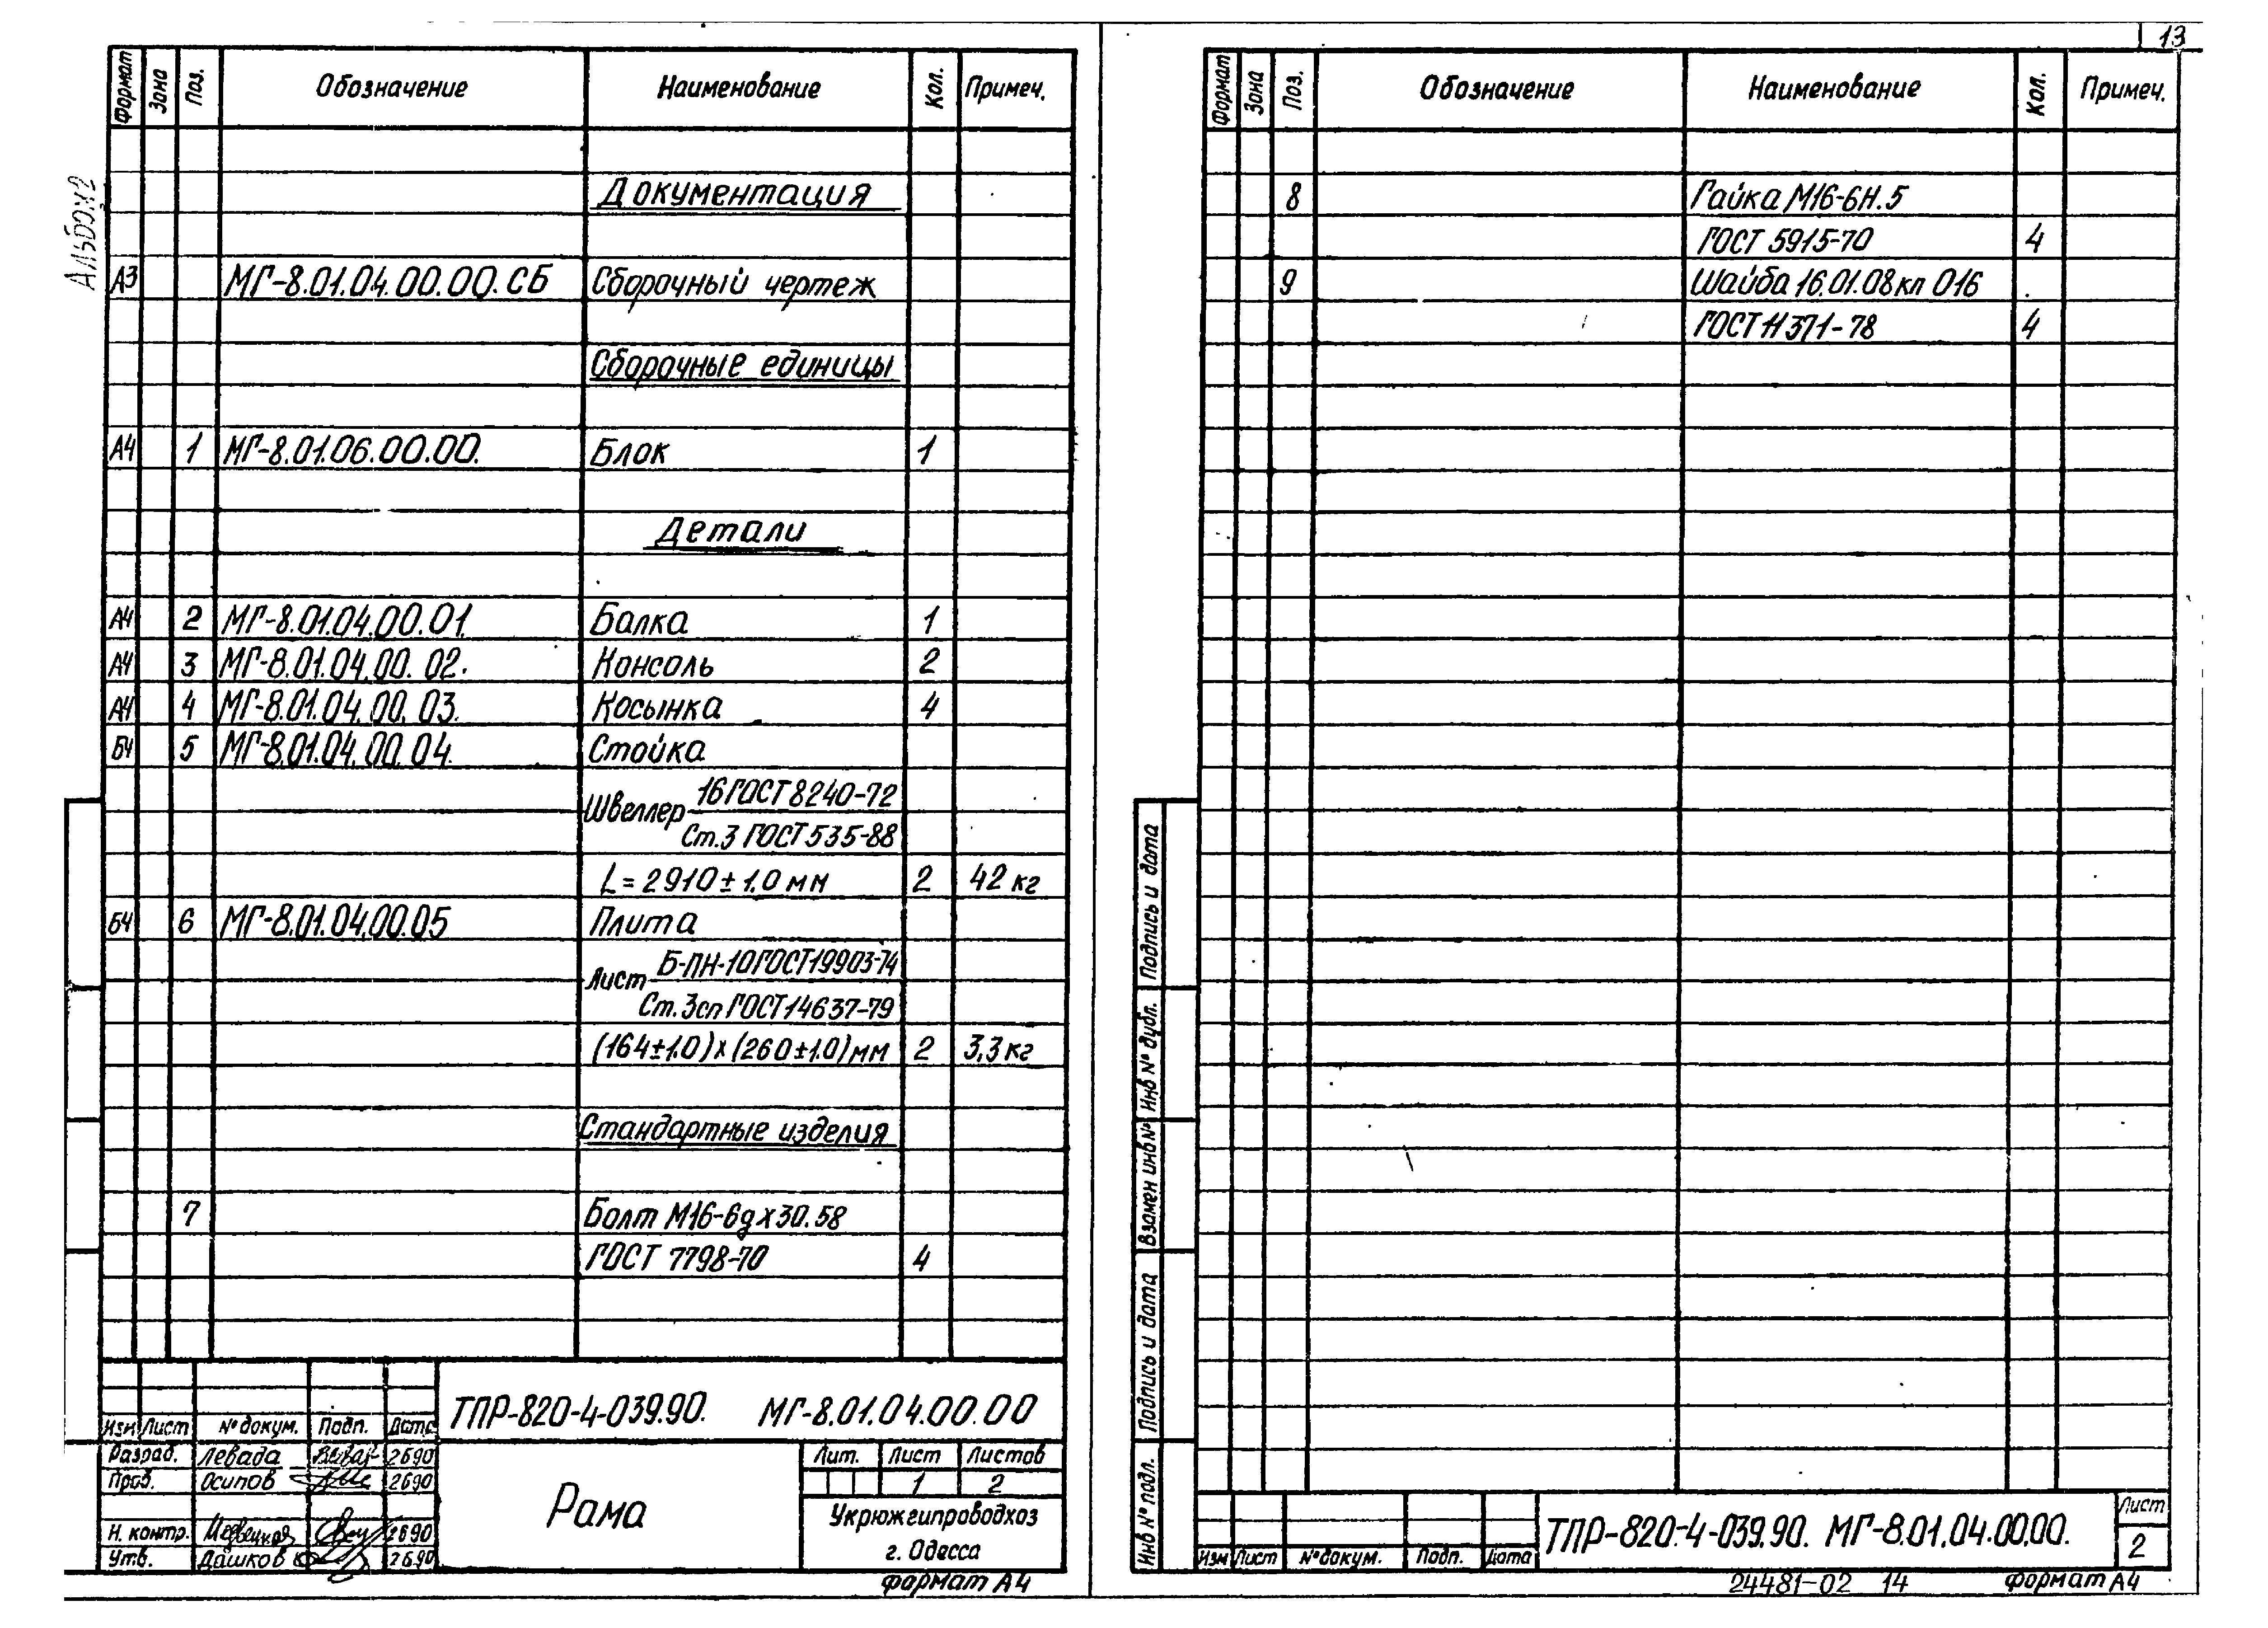 Альбом 2
Формат Зона Поз. Обозначение Наименование Кол. Примеч.
Документация
А3 МГ-8.01.04.00.00.СБ Сборочный чертеж
Сборочные единицы
А4 1 МГ-8.01.06.00.00. Блок 1
Детали
А4 2 МГ-8.01.04.00.01. Балка 1
А4 3 МГ-8.01.04.00.02. Консоль 2
А4 4 МГ-8.01.04.00.03. Косынка 4
БЧ 5 МГ-8.01.04.00.04. Стойка
16 ГОСТ 8240-72
Швеллер
Ст.3 ГОСТ 535-88
L = 2910 ± 1.0 мм 2 42 кг
БЧ 6 МГ-8.01.04.00.05 Плита
Б-ПН-10 ГОСТ 19903-74
Лист
Ст. 3сп ГОСТ 14637-79
(164±1.0)х(260±1.0)мм 2 3,3 кг
Стандартные изделия
7 Болт М16-6gх30.58
ГОСТ 7798-70 4
ТПР-820-4-039.90. МГ-8.01.04.00.00
Изм Лист № докум. Подп. Дата
Разраб. Левада 2690
Пров. Осипов 2690
Н. контр. Медвецкая 2690
Утв. Дашков 2690
Рама
Лит. Лист Листов
1 2
Укрюжгипроводхоз
г. Одесса
формат А4
13
Формат Зона Поз. Обозначение Наименование Кол. Примеч.
8 Гайка М16-6Н.5
ГОСТ 5915-70 4
9 Шайба 16.01.08кп 016
ГОСТ 11371-78 4
Подпись и дата
Инв № дубл.
Взамен инв №
Подпись и дата
Инв № подл.
Изм Лист № докум. Подп. Дата
ТПР-820-4-039.90. МГ-8.01.04.00.00.
Лист
2
24481-02 14 формат А4